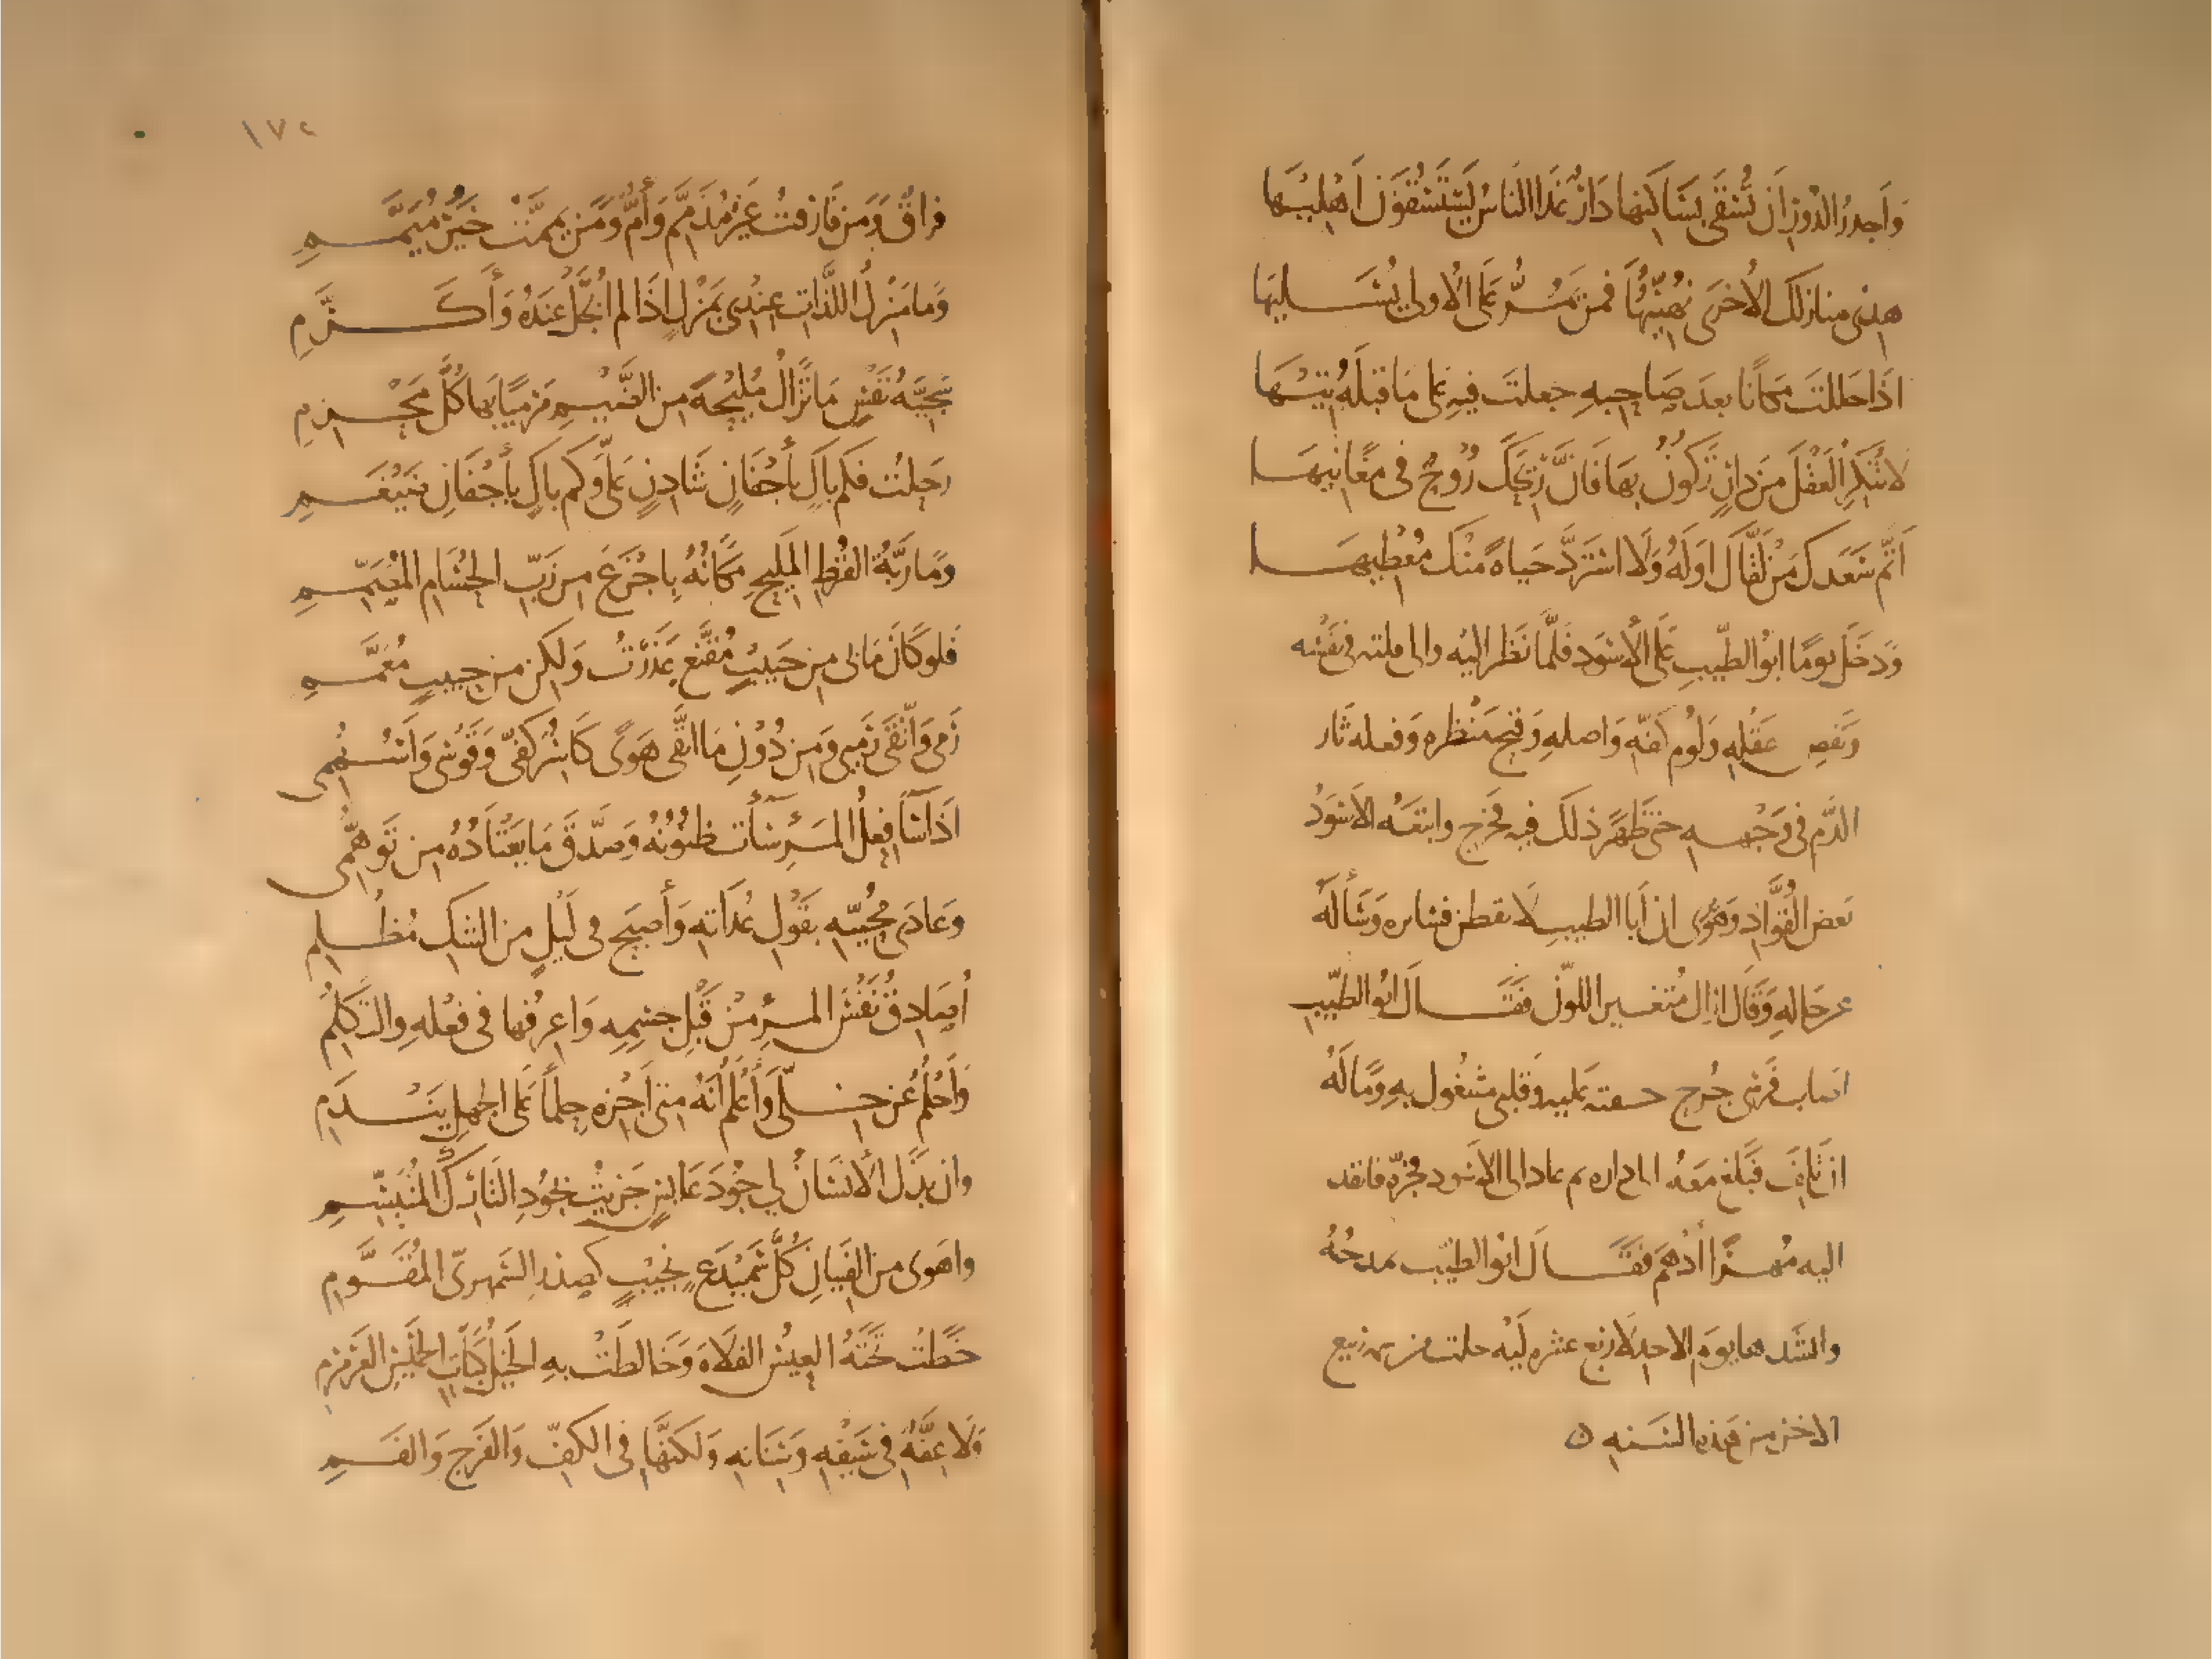 وَأَجدرُ الدُورِ أَن تُسْقَى بسَاكِنِها دَارٌ غَدَا الناسُ يَسْتَسْقُونَ أَهْلِيهَا
هذِى منازلكَ الأُخرَى نُهَنِّيُّهَا فمَن يَمُرُّ عَلى الأولى يُسَليهَا
اذَا حَللتَ مَكانًا بعدَ صَاحِبهِ جعلتَ فيهِ عَلى مَا قبلَهُ تِيْهَا
لا تُنكِرِ العَقْلَ مِن دارٍ تَكونُ بِهَا فَانَّ رِيحَكَ رُوحٌ فى مغَانيهَا
أَتَمَّ سَعْدَكَ مَن لَقَّاكَ اوَلَهُ وَلَا استَرَدَّ حَياةً مِنْكَ مُعْطِيهَا
وَدَخَلَ يومًا ابوُ الطّيبِ عَلى الأسْوَد فَلَمَّا نَظر اليْه والى قلته فى نفسْه
وَنقصِ عَقْلِهِ وَلُوم كفّه وَاصلهِ وَقبح مَنْظره وَفعله ثَار
الدَّم فى وَجْهه حتى ظهَر ذلكَ فيه فخرج واتبعَه الأسْودُ
بَعضَ القُوَّاد وَهوَ يرى ان أبا الطيب لَا يفطن فسايره وَسَأَلَهُ
عن حَالهِ وَقَال اراك مُتغير اللوْن فقَال ابوُ الطيّبِ
اصاب فَرسِى جُرح خفته عليه وَقلبى مشغُول بهِ وَمَا لَهُ
ان تلفَ فبَلغ معَهُ الى داره ثم عاد الى الاسْود فخبّره فانفد
اليه مُهرًا أدْهَم فَقَال ابُو الطيّب يمدحُهُ
وانشَدها يومَ الاحد لاربع عشره ليَله خلت من شهر ربيع
الاخر من هَذه السَنه ه
١٧٢
فراقٌ وَمَن فَارَقتُ غَيْرُ مُذَمَّمِ وَأَمٌّ وَمَن يمَّمْتُ خَيْرُ مُيَمَّمِ
وَمَا مَنْزِلُ اللَّذّاتِ عِنْدِى بمَنْزِلٍ اذَا لم أُبَجَّلْ عِنْدَهُ وَأُكَرَّمِ
سَجِيَّةُ نَفْسٍ مَا تَزَالُ مُلِيْحَةً مِن الضَّيْمِ مَرْمِيًّا بهَا كُلُّ مَخْرِمِ
رَحلتُ فكم باكٍ بأَجْفَانِ شَادِنٍ عَلىَّ وَكم باكٍ بأَجْفَانِ ضَيْغَمِ
وَمَا رَبَّةُ القُرْطِ المَلِيحِ مَكَانُهُ بِاجْزَعَ مِن رَبِّ الحُسَامِ المُصَمِّمِ
فَلو كَانَ مَا بى مِن حَبيبٍ مُقنَّعٍ عَذَرْتُ وَلكِن مِن حبيبٍ مُعَمَّمِ
رَمَى وَاتَّقَى رَمْيى وَمِن دُوْنِ مَا اتَّقَى هَوًى كَاسِرٌ كفِّى وَقَوْسِى وَاسْهُمِى
اذَا سَاءَ فِعلُ المَرْءِ سَاءَت ظنُونُهُ وَصَدَّقَ مَا يَعْتَادُهُ مِن تَوَهُّمِ
وَعَادَى مُحِبّيهِ بقَوْلِ عُدَاتهِ وَأَصْبَحَ فى لَيْلٍ مِن الشكِّ مُظلِمِ
أُصَادِقُ نَفْسَ المَرْءِ مِنْ قَبْلِ جسْمِهِ وَاعرِفُها فى فعْلهِ وَالتَكَلُّمِ
وَأَحْلُمُ عَن خِلِّى وَأَعْلَمُ أَنَّهُ مَتى أَجْزِه حِلمًا عَلى الجهلِ يَنْدَمِ
وان بذَلَ الأنسَانُ لى جُوْدَ عَابسٍ جَزيتُ بجُودِ التَارِكِ المُتَبَسِّمِ
واهْوى مِن الفتيانِ كُلَّ سَمَيْدَعٍ نَجيْبٍ كصَدْرِ السَّمهرىّ المُقَوَّمِ
خَطَتْ تَحْتَهُ العِيسُ الفَلاةَ وَخَالطَتْ بهِ الخيْلُ كَبَّاتِ الخميسِ العَرَمْرَمِ
وَلا عِفَّةٌ فى سَيْفِهِ وَسِنَانهِ وَلكنَّهَا فى الكفِّ وَالفَرْجِ وَالفَمِ